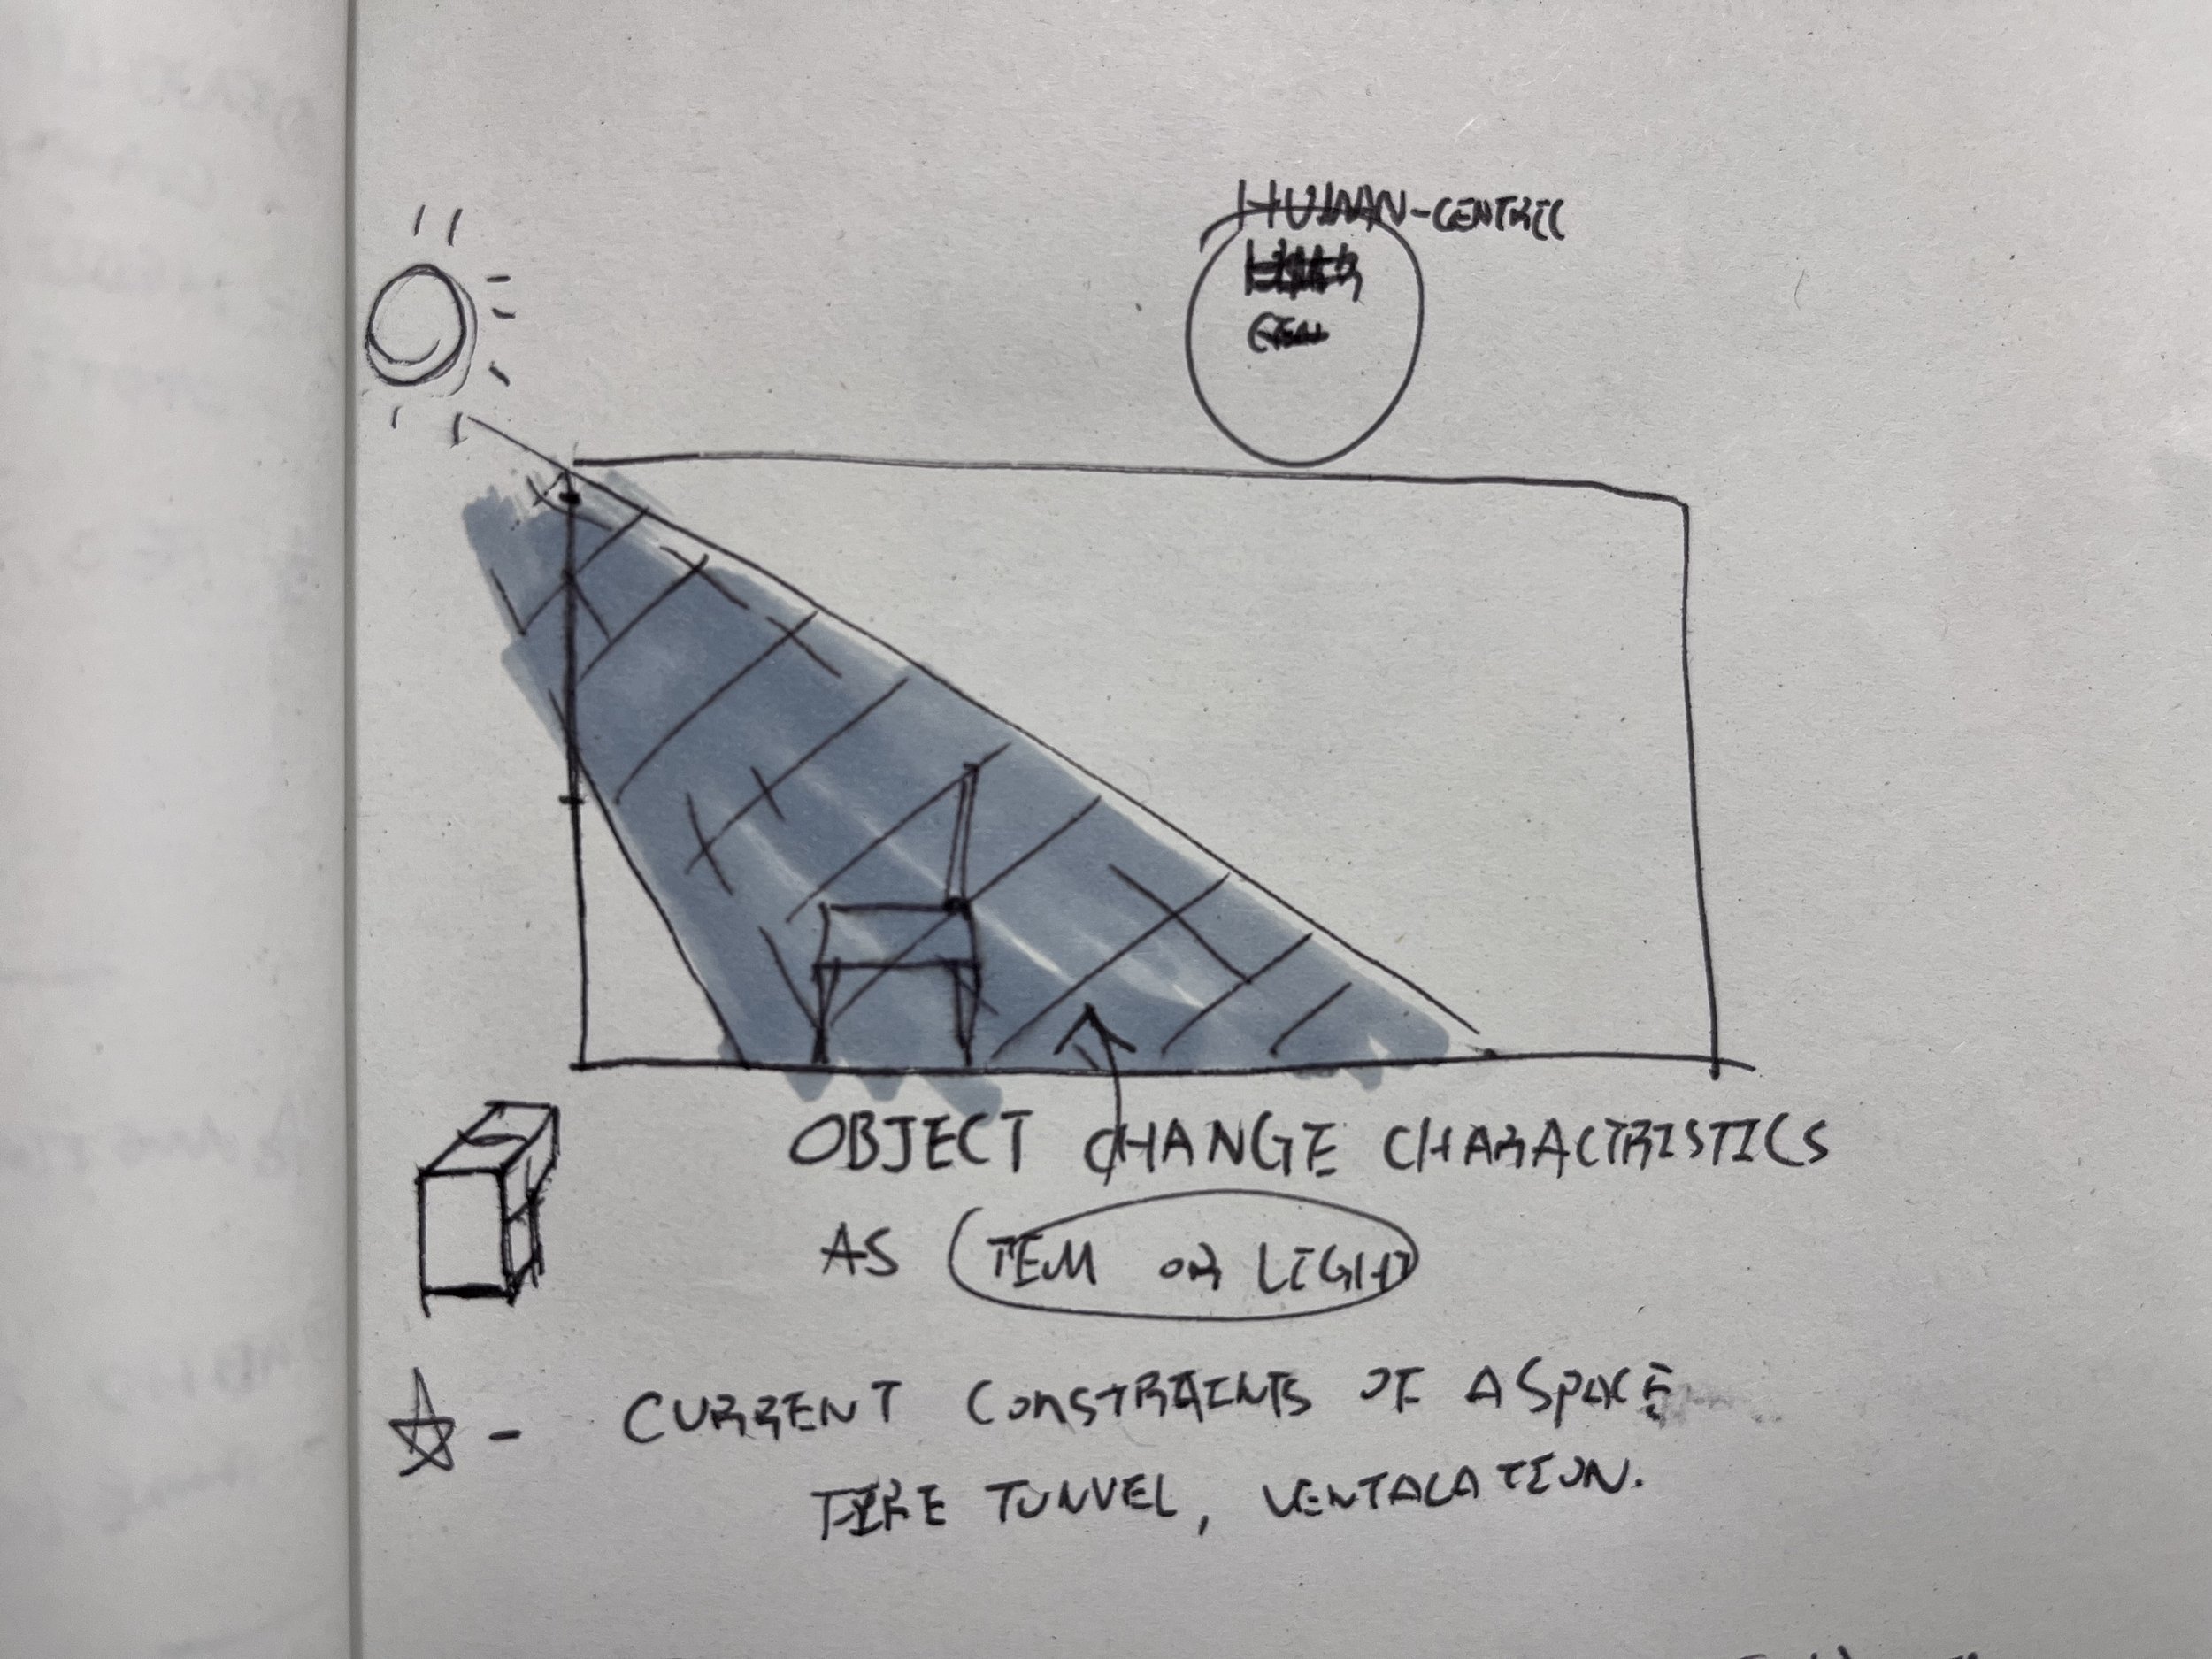 HUMAN-CENTRIC
OBJECT CHANGE CHARACTRISTICS
AS TEM OR LIGHT
- CURRENT CONSTRAINTS OF A SPACE
FIRE TUNVEL, VENTALATION.